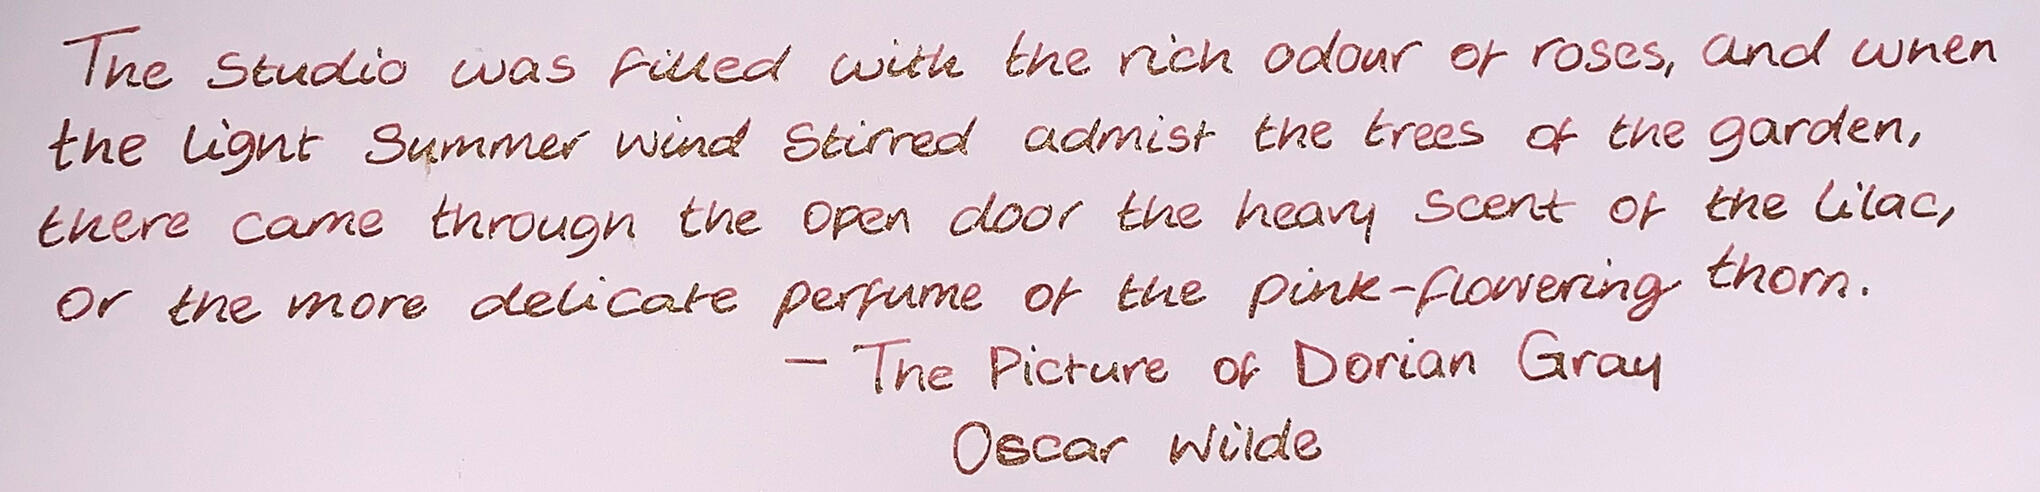 The Studio was filled with the rich odour of roses, and when
the light Summer wind Stirred admist the trees of the garden,
there came through the open door the heavy scent of the lilac,
or the more delicate perfume of the pink-flowering thorn.
- The Picture of Dorian Gray
Oscar Wilde